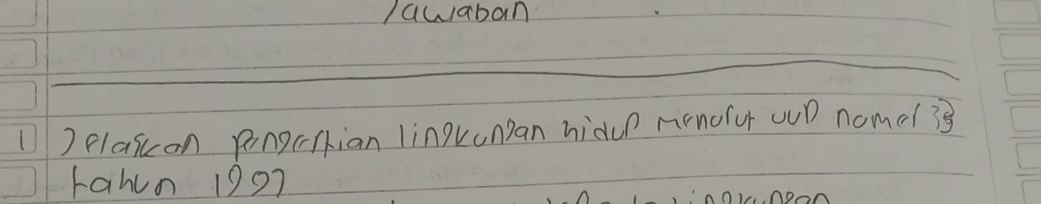 Jawaban
1 Jelaskan Pengertian lingkungan hidup Menurut UUD nomor 23
tahun 1997
lingkungan